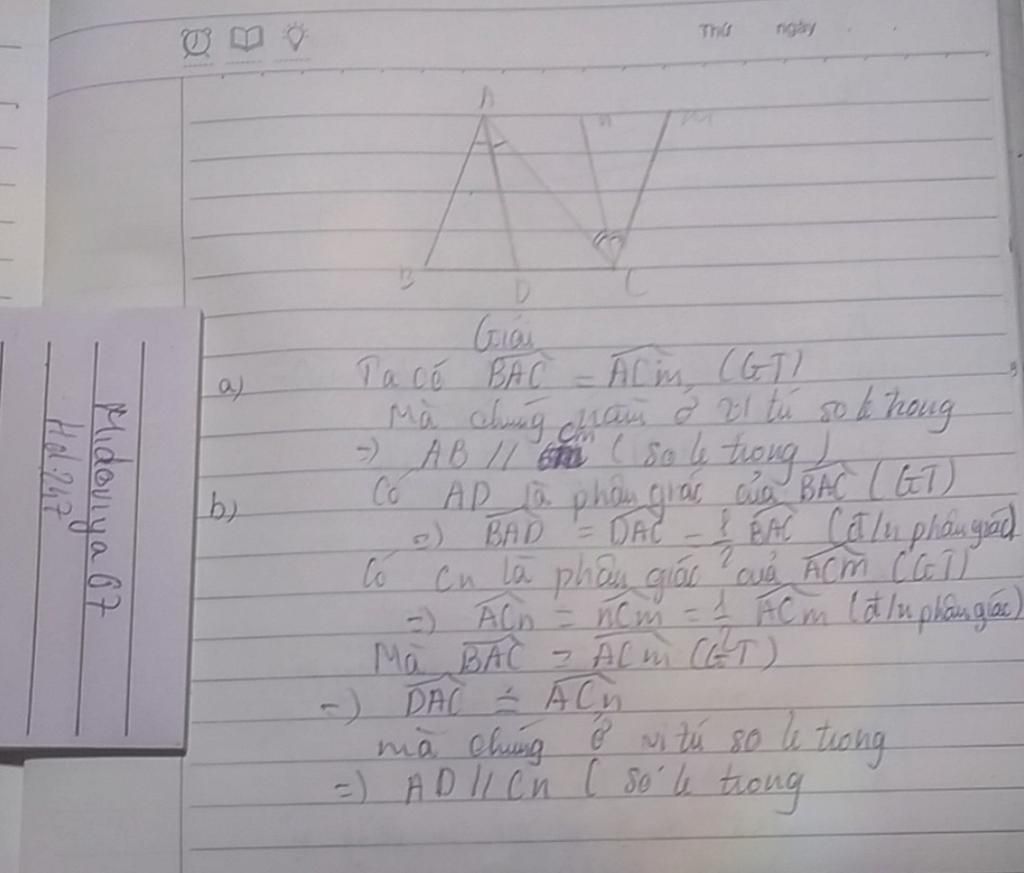 Thứ ngày
A n m
B D C
Giải
a) Ta có BAC = ACm (GT)
Mà chúng nằm ở vị trí so le trong
=) AB // Cm (so le trong)
b) Có AD là phân giác của BAC (GT)
=) BAD = DAC = 1/2 BAC (đ/n phân giác)
Có Cn là phân giác của ACm (GT)
=) ACn = nCm = 1/2 ACm (đ/n phân giác)
Mà BAC = ACm (GT)
=) DAC = ACn
mà chúng ở vị trí so le trong
=) AD // Cn ( so le trong
Midoriya67
Hd:247